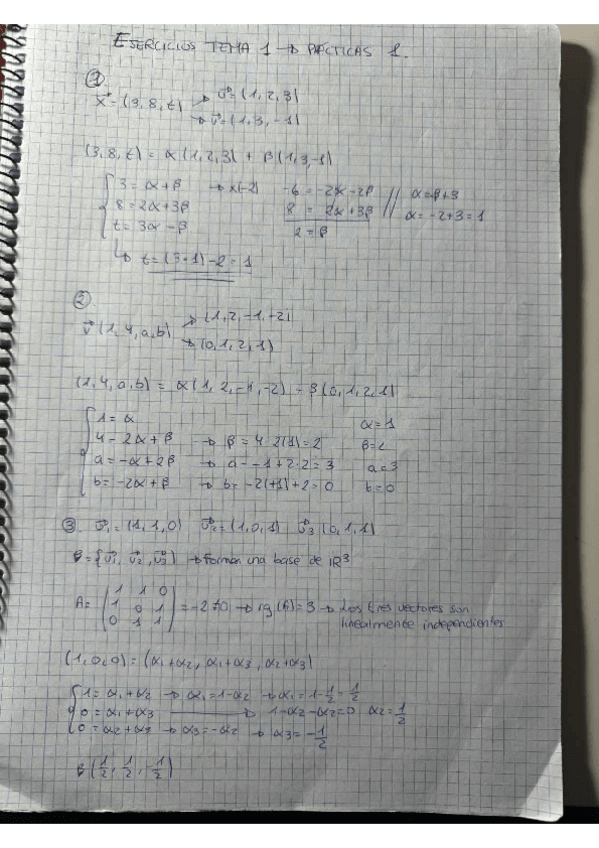 EJERCICIOS TEMA 1 → PRÁCTICAS 1.
①
x⃗ = (3, 8, t) → u⃗ = (1, 2, 3)
→ v⃗ = (1, 3, -1)
(3, 8, t) = α(1, 2, 3) + β(1, 3, -1)
3 = α + β → x(-2) -6 = -2α - 2β // α = β + 3
8 = 2α + 3β 8 = 2α + 3β α = -2 + 3 = 1
t = 3α - β 2 = β
↳ t = (3·1) - 2 = 1
②
v⃗ (1, 4, a, b) → (1, 2, -1, -2)
→ (0, 1, 2, 1)
(1, 4, a, b) = α(1, 2, -1, -2) - β(0, 1, 2, 1)
1 = α α = 1
4 = 2α + β → β = 4 2(1) = 2 β = 2
a = -α + 2β → a = -1 + 2·2 = 3 a = 3
b = -2α + β → b = -2(+1) + 2 = 0 b = 0
③. v⃗₁ = (1, 1, 0) v⃗₂ = (1, 0, 1) v⃗₃ (0, 1, 1)
B = {v⃗₁, v⃗₂, v⃗₃} → forman una base de ℝ³
1 1 0
A = 1 0 1 = -2 ≠ 0 → rg(A) = 3 → Los tres vectores son
0 1 1 linealmente independientes
(1, 0, 0) = (α₁+α₂, α₁+α₃, α₂+α₃)
1 = α₁ + α₂ → α₁ = 1 - α₂ → α₁ = 1 - 1/2 = 1/2
0 = α₁ + α₃ → 1 - α₂ - α₂ = 0 α₂ = 1/2
0 = α₂ + α₃ → α₃ = -α₂ → α₃ = -1/2
B (1/2, 1/2, -1/2)